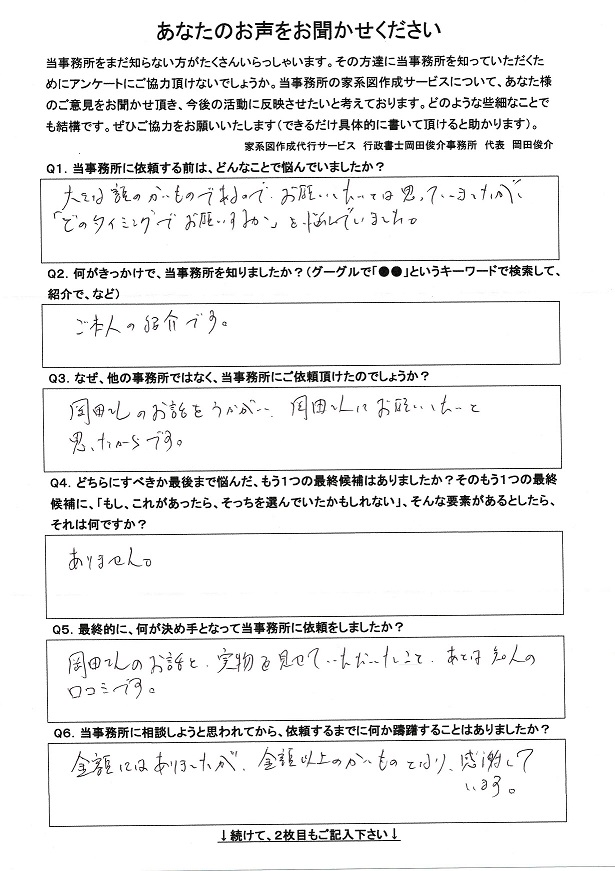 あなたのお声をお聞かせください
当事務所をまだ知らない方がたくさんいらっしゃいます。その方達に当事務所を知っていただくた
めにアンケートにご協力頂けないでしょうか。当事務所の家系図作成サービスについて、あなた様
のご意見をお聞かせ頂き、今後の活動に反映させたいと考えております。どのような些細なことで
も結構です。ぜひご協力をお願いいたします(できるだけ具体的に書いて頂けると助かります)。
家系図作成代行サービス 行政書士岡田俊介事務所 代表 岡田俊介
Q1. 当事務所に依頼する前は、どんなことで悩んでいましたか?
額のかいものであるので、お願いしたいとは思っていましたが
「どのタイミングでお願いするか」と悩んでいました。
Q2. 何がきっかけで、当事務所を知りましたか?(グーグルで「●●」というキーワードで検索して、
紹介で、など)
ご本人の紹介です。
Q3. なぜ、他の事務所ではなく、当事務所にご依頼頂けたのでしょうか?
岡田さんのお話をうかがい、岡田さんにお願いしたいと
思ったからです。
Q4. どちらにすべきか最後まで悩んだ、もう1つの最終候補はありましたか?そのもう1つの最終
候補に、「もし、これがあったら、そっちを選んでいたかもしれない」、そんな要素があるとしたら、
それは何ですか?
ありません。
Q5. 最終的に、何が決め手となって当事務所に依頼をしましたか?
岡田さんのお話と、実物を見せていただいたこと、あとは知人の
口コミです。
Q6. 当事務所に相談しようと思われてから、依頼するまでに何か躊躇することはありましたか?
金額にはありましたが、金額以上のかいものとなり、感謝して
います。
↓続けて、2枚目もご記入下さい↓